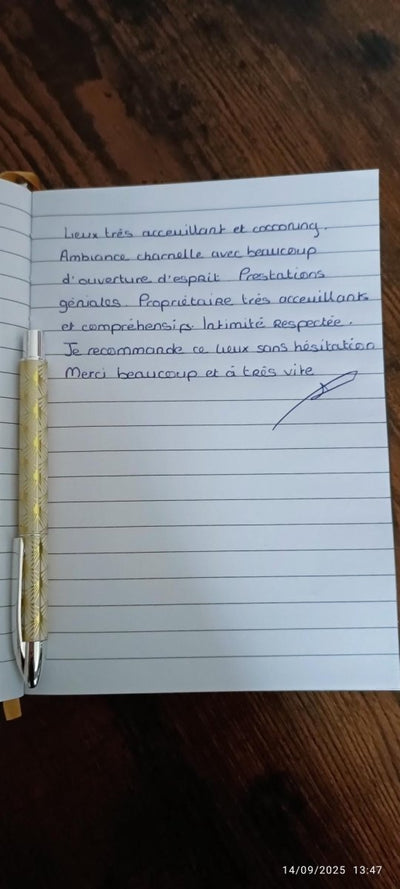 Lieux très acceuillant et cocooning.
Ambiance charnelle avec beaucoup
d'ouverture d'esprit Prestations
géniales. Propriétaire très acceuillants
et compréhensifs. Intimité Respectée.
Je recommande ce lieux sans hésitation
Merci beaucoup et à très vite
14/09/2025 13:47